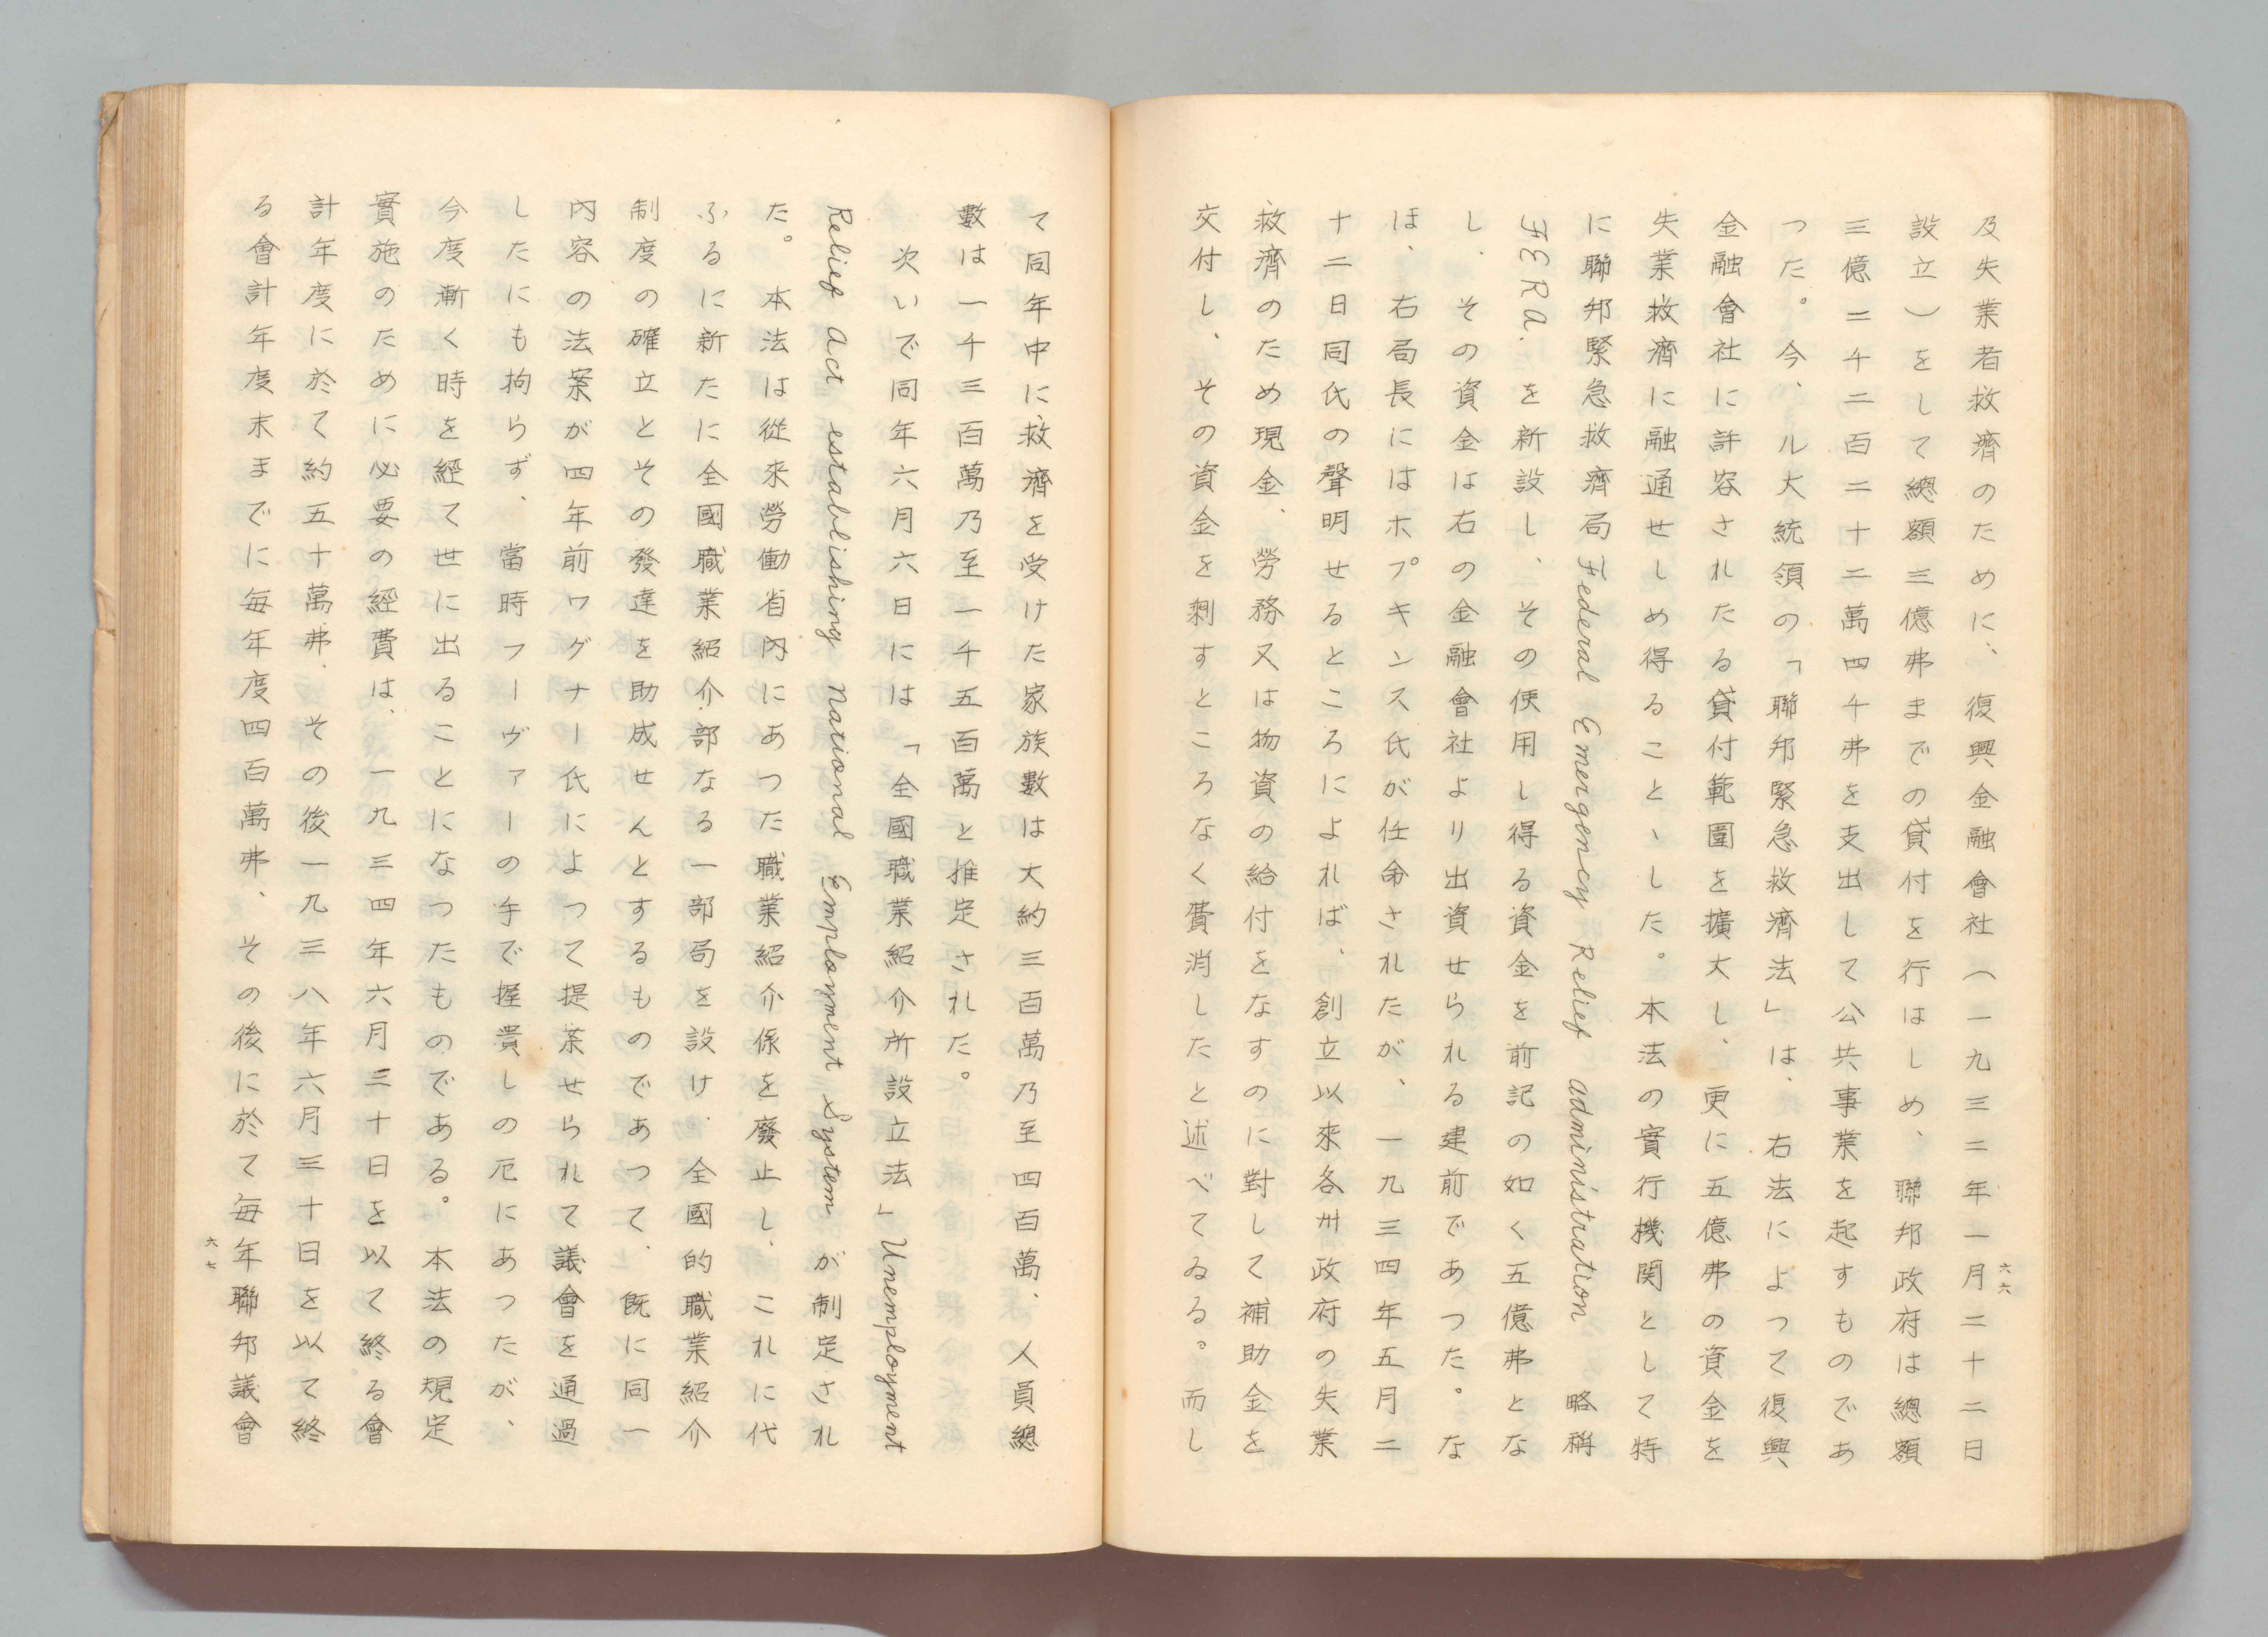 及失業者救濟のために、復興金融會社（一九三二年一月二十二日
設立）をして總額三億弗までの貸付を行はしめ、聯邦政府は總額
三億二千二百二十二萬四千弗を支出して公共事業を起すものであ
つた。今、ル大統領の「聯邦緊急救濟法」は、右法によつて復興
金融會社に許容されたる貸付範圍を擴大し、更に五億弗の資金を
失業救濟に融通せしめ得ることゝした。本法の實行機関として特
に聯邦緊急救濟局 Federal Emergency Relief administration 略稱
FERA. を新設し、その使用し得る資金を前記の如く五億弗とな
し、その資金は右の金融會社より出資せられる建前であつた。な
ほ、右局長にはホプキンス氏が任命されたが、一九三四年五月二
十二日同氏の聲明せるところによれば、創立以來各州政府の失業
救濟のため現金、勞務又は物資の給付をなすのに對して補助金を
交付し、その資金を剩すところなく費消したと述べてゐる。而し
六六
て同年中に救濟を受けた家族數は大約三百萬乃至四百萬、人員總
數は一千三百萬乃至一千五百萬と推定された。
次いで同年六月六日には「全國職業紹介所設立法」Unemployment
Relief Act establishing National Employment System が制定され
た。本法は從來勞働省內にあつた職業紹介係を廢止し、これに代
ふるに新たに全國職業紹介部なる一部局を設け、全國的職業紹介
制度の確立とその發達を助成せんとするものであつて、既に同一
內容の法案が四年前ワグナー氏によつて提案せられて議會を通過
したにも拘らず、當時フーヴァーの手で握潰しの厄にあつたが、
今度漸く時を經て世に出ることになつたものである。本法の規定
實施のために必要の經費は、一九三四年六月三十日を以て終る會
計年度に於て約五十萬弗、その後一九三八年六月三十日を以て終
る會計年度末までに毎年度四百萬弗、その後に於て毎年聯邦議會
六七